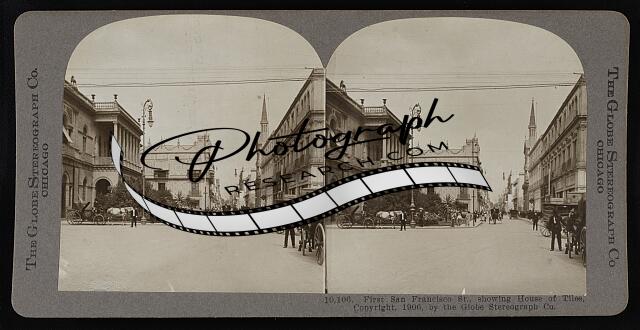 THE GLOBE STEREOGRAPH CO.
CHICAGO
Photograph
RESEARCH.COM
THE GLOBE STEREOGRAPH CO.
CHICAGO
10,106. First San Francisco St., showing House of Tiles,
Copyright, 1906, by the Globe Stereograph Co.